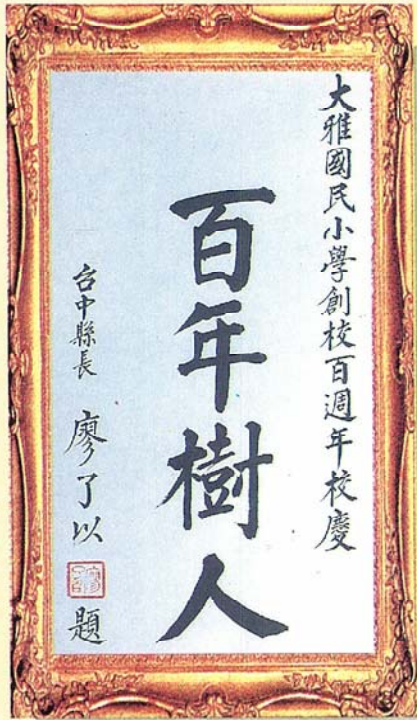 大雅國民小學創校百週年校慶
百年樹人
台中縣長 廖了以 題